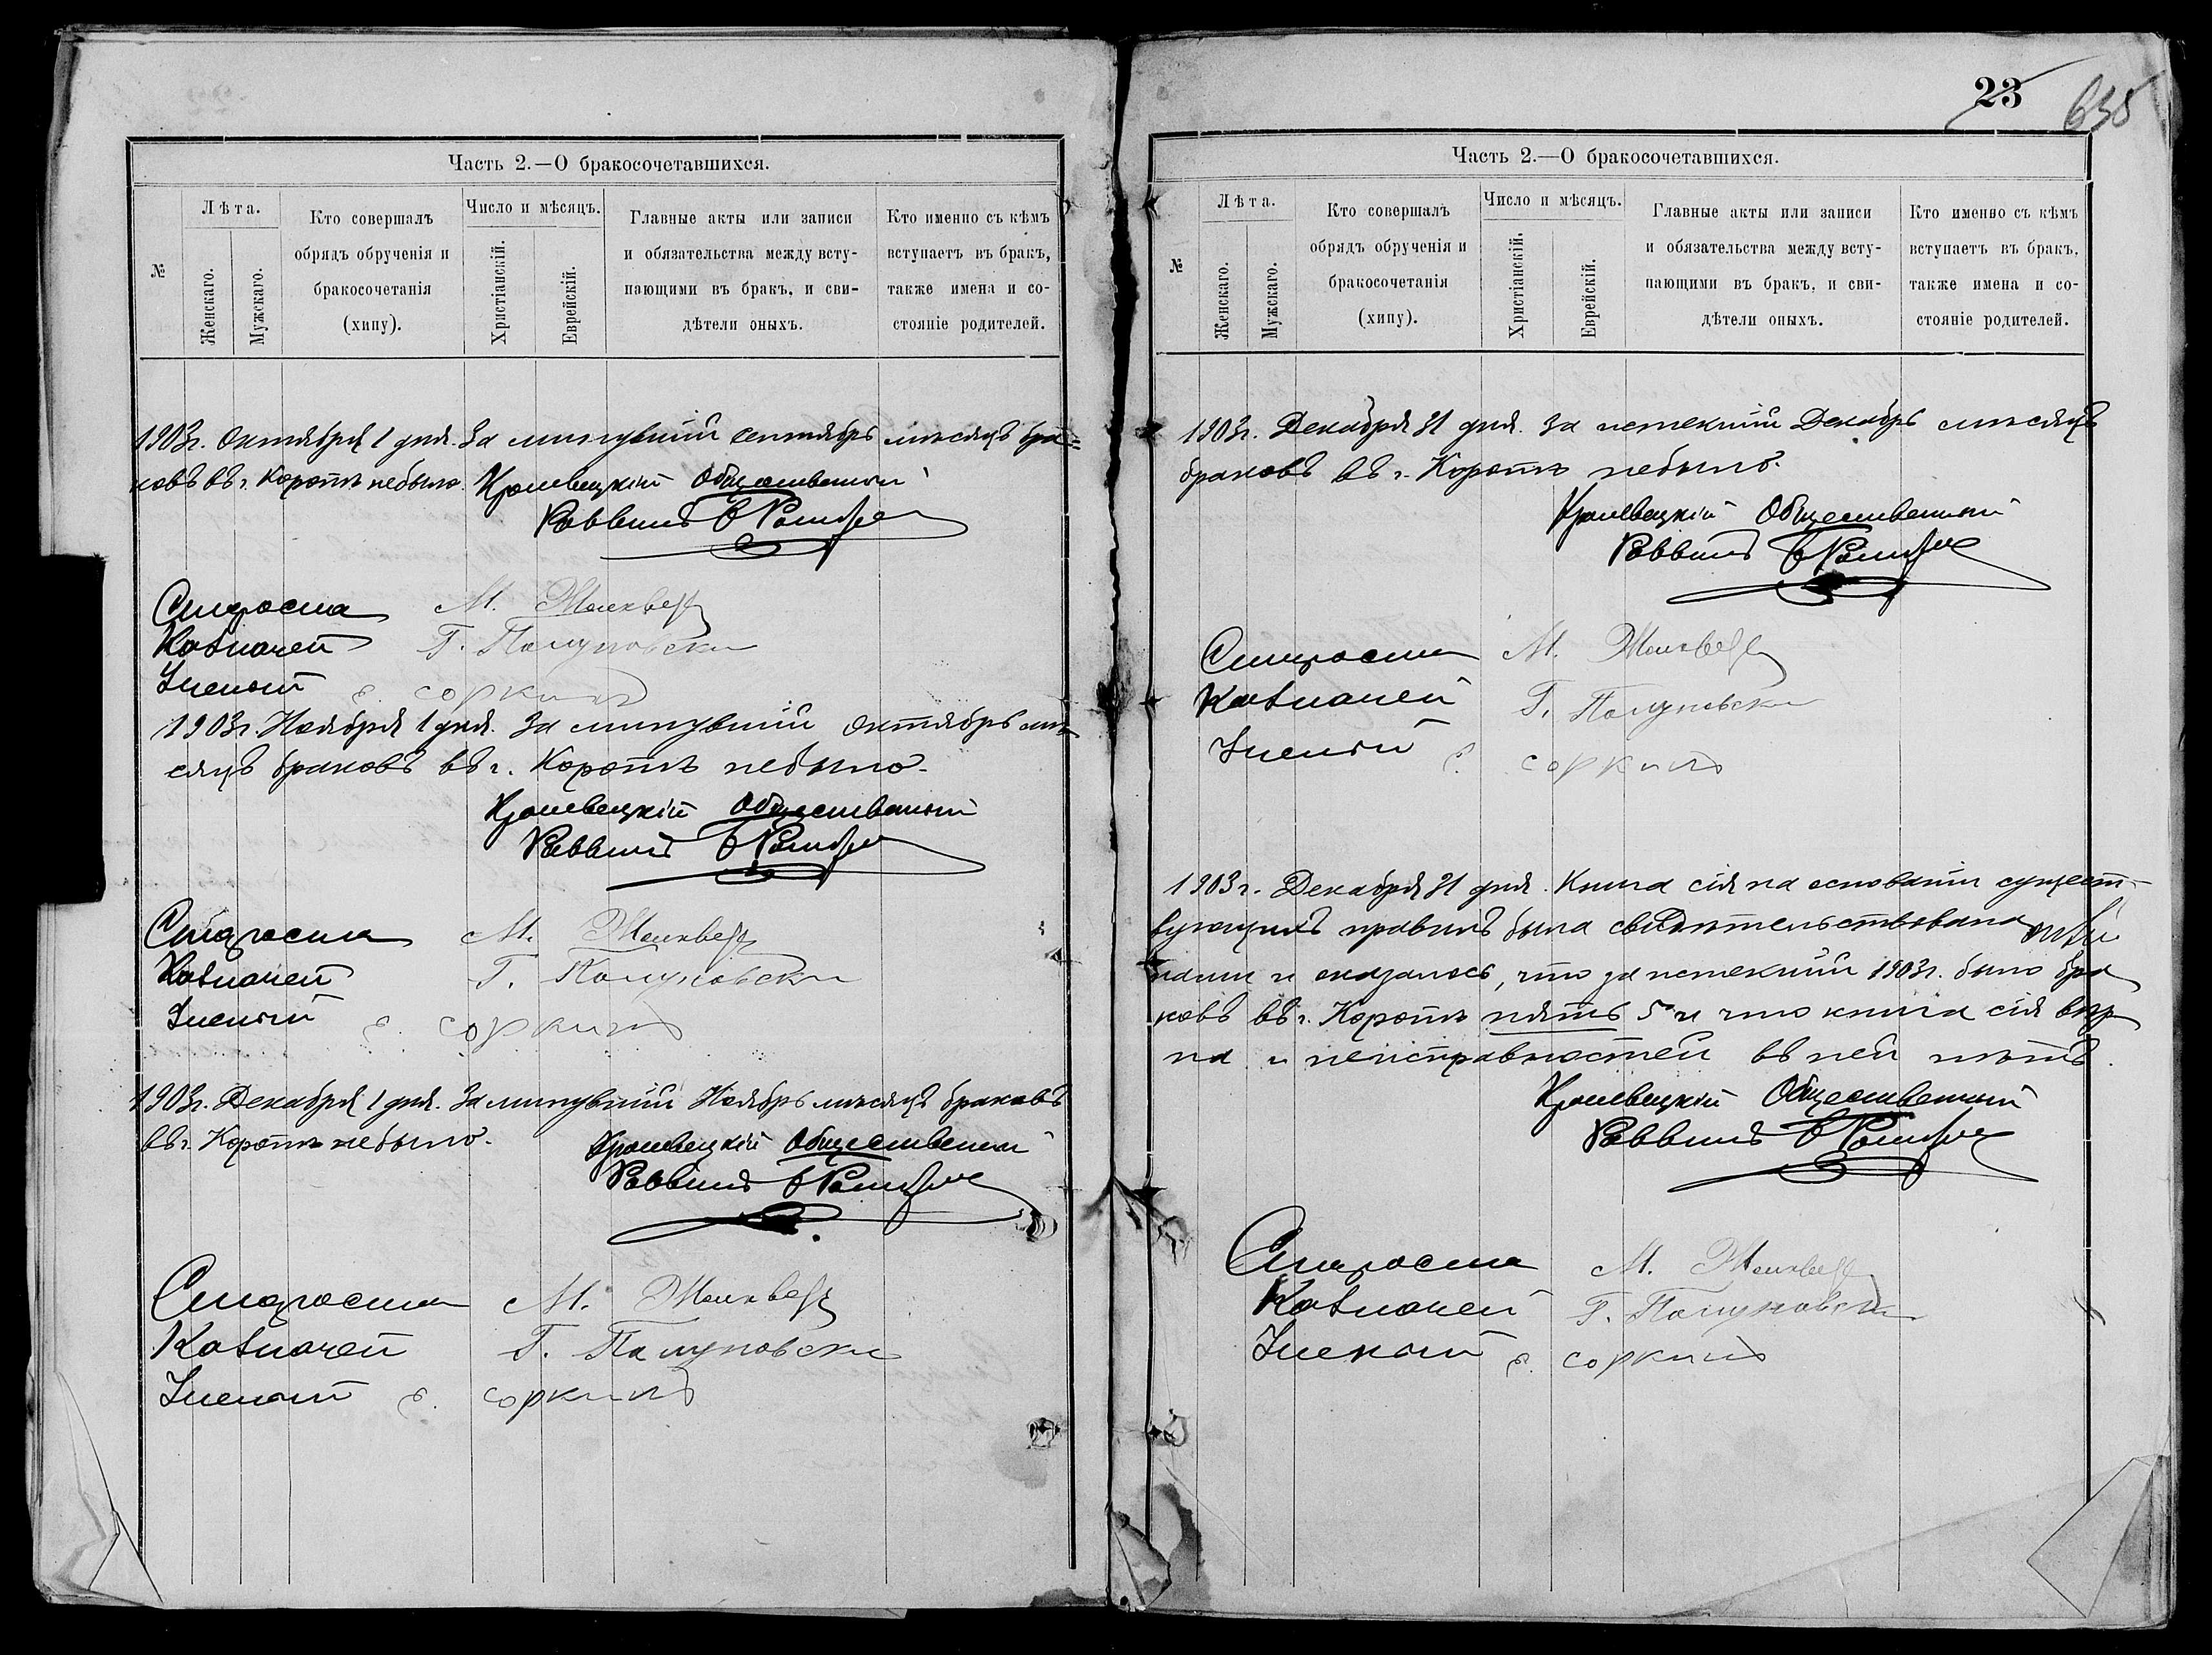 Часть 2.—О бракосочетавшихся.
№
Лѣта.
Женскаго.
Мужскаго.
Кто совершалъ
обрядъ обрученія и
бракосочетанія
(хипу).
Число и мѣсяцъ.
Христіанскій.
Еврейскій.
Главные акты или записи
и обязательства между всту-
пающими въ бракъ, и сви-
дѣтели оныхъ.
Кто именно съ кѣмъ
вступаетъ въ бракъ,
также имена и со-
стояніе родителей.
1903г. Октября 1 дня. За минувшій сентябрь мѣсяцъ бра=
ковъ въ г. Коропѣ небыло. Кролевецкій Общественный
Раввинъ
Староста М.
Казначей Г.
Ученый Е. Соркинъ
1903г. Ноября 1 дня. За минувшій октябрь мѣ
сяцъ браковъ въ г. Коропѣ небыло.
Кролевецкій Общественный
Раввинъ
Староста М.
Казначей Г.
Ученый Е. Соркинъ
1903г. Декабря 1 дня. За минувшій Ноябрь мѣсяцъ браковъ
въ г. Коропѣ небыло.
Кролевецкій Общественный
Раввинъ
Староста М.
Казначей Г.
Ученый Е. Соркинъ
23
Часть 2.—О бракосочетавшихся.
№
Лѣта.
Женскаго.
Мужскаго.
Кто совершалъ
обрядъ обрученія и
бракосочетанія
(хипу).
Число и мѣсяцъ.
Христіанскій.
Еврейскій.
Главные акты или записи
и обязательства между всту-
пающими въ бракъ, и сви-
дѣтели оныхъ.
Кто именно съ кѣмъ
вступаетъ въ бракъ,
также имена и со-
стояніе родителей.
1903г. Декабря 31 дня. За истекшій Декабрь мѣсяцъ
браковъ въ г. Коропѣ небыло.
Кролевецкій Общественный
Раввинъ
Староста М.
Казначей Г.
Ученый Е. Соркинъ
1903г. Декабря 31 дня. Книга сія на основаніи сущест-
вующихъ правилъ была свидѣтельствована
нами и оказалось, что за истекшій 1903г. было бра
ковъ въ г. Коропѣ пять 5 и что книга сія вѣр
на и неисправностей въ ней нѣтъ.
Кролевецкій Общественный
Раввинъ
Староста М.
Казначей Г.
Ученый Е. Соркинъ